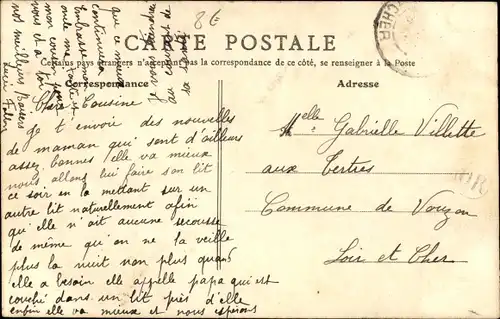 8 E
CARTE POSTALE
Certains pays étrangers n'acceptant pas la correspondance de ce côté, se renseigner à la Poste
Correspondance
Adresse
CHER
Chère Cousine
Je t envoie des nouvelles
de maman qui sont d'ailleurs
assez bonnes elle va mieux
nous allons lui faire son lit
ce soir en la mettant sur un
autre lit naturellement afin
qu'elle n'ait aucune secousse
de même qu'on ne la veille
plus la nuit non plus quand
elle a besoin elle appelle papa qui est
couché dans un lit près d'elle
enfin elle va mieux et nous espérons
que ce mieux
continuera
Embrasse mon
oncle ma tante
mon cousin pour
nous et à toi
nos meilleurs baisers
Melle Gabrielle Villette
aux Tertres
Commune de Vouzon
Loir et Cher